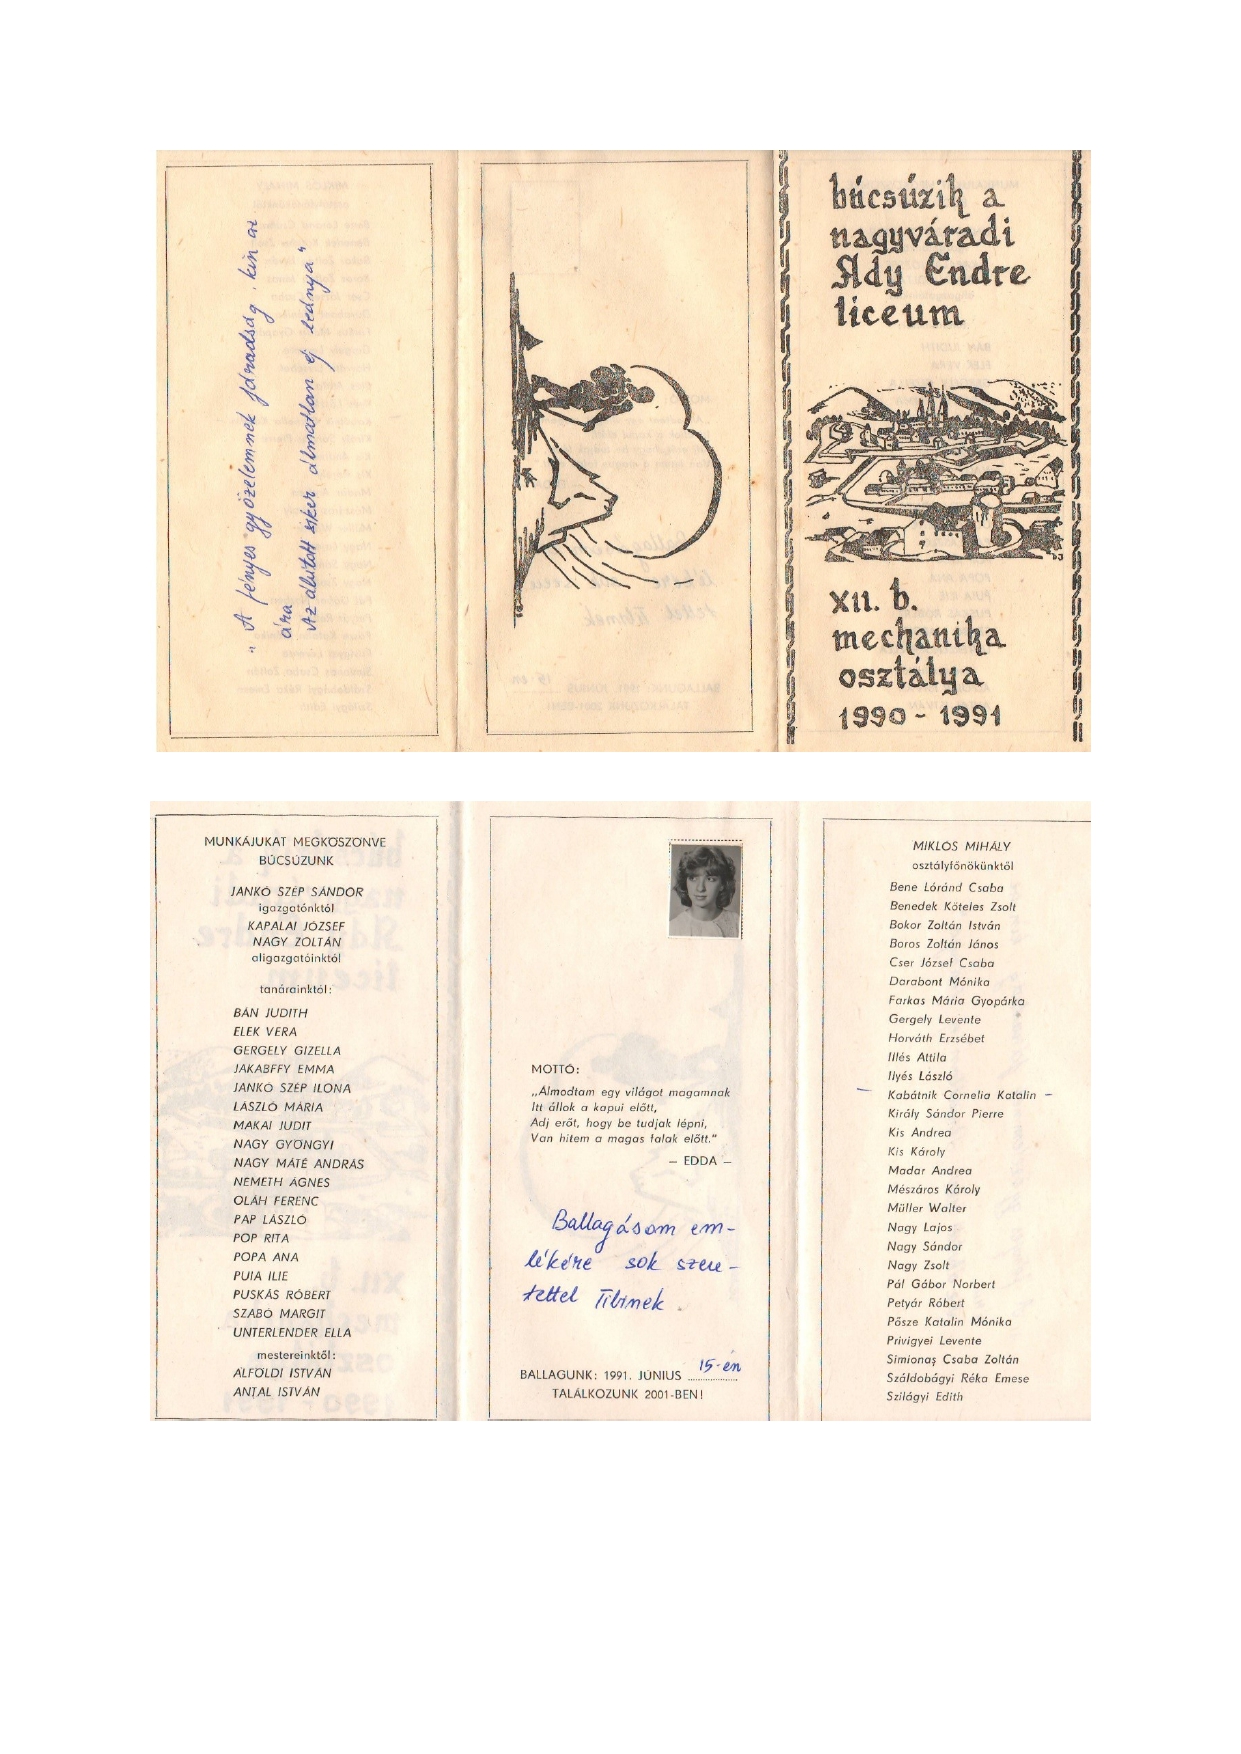 „A fényes győzelemnek fáradság, kín az
ára
Az áhított siker álmatlan éj leánya"
búcsúzik a
nagyváradi
Ady Endre
liceum
XII. b.
mechanika
osztálya
1990 - 1991
MUNKÁJUKAT MEGKÖSZÖNVE
BÚCSÚZUNK
JANKÓ SZÉP SÁNDOR
igazgatónktól
KAPALAI JÓZSEF
NAGY ZOLTÁN
aligazgatóinktól
tanárainktól:
BÁN JUDITH
ELEK VERA
GERGELY GIZELLA
JAKABFFY EMMA
JANKÓ SZÉP ILONA
LÁSZLÓ MÁRIA
MAKAI JUDIT
NAGY GYÖNGYI
NAGY MÁTÉ ANDRÁS
NÉMETH ÁGNES
OLÁH FERENC
PAP LÁSZLÓ
POP RITA
POPA ANA
PUIA ILIE
PUSKÁS RÓBERT
SZABÓ MARGIT
UNTERLENDER ELLA
mestereinktől:
ALFÖLDI ISTVÁN
ANTAL ISTVÁN
MOTTÓ:
„Álmodtam egy világot magamnak
Itt állok a kapui előtt,
Adj erőt, hogy be tudjak lépni,
Van hitem a magas falak előtt."
– EDDA –
Ballagásom em-
lékére sok szere-
tettel Tibinek.
BALLAGUNK: 1991. JÚNIUS 15-én
TALÁLKOZUNK 2001-BEN!
MIKLÓS MIHÁLY
osztályfőnökünktől
Bene Lóránd Csaba
Benedek Köteles Zsolt
Bokor Zoltán István
Boros Zoltán János
Cser József Csaba
Darabont Mónika
Farkas Mária Gyopárka
Gergely Levente
Horváth Erzsébet
Illés Attila
Ilyés László
Kabátnik Cornelia Katalin
Király Sándor Pierre
Kis Andrea
Kis Károly
Madar Andrea
Mészáros Károly
Müller Walter
Nagy Lajos
Nagy Sándor
Nagy Zsolt
Pál Gábor Norbert
Petyár Róbert
Pősze Katalin Mónika
Privigyei Levente
Simionaş Csaba Zoltán
Száldobágyi Réka Emese
Szilágyi Edith